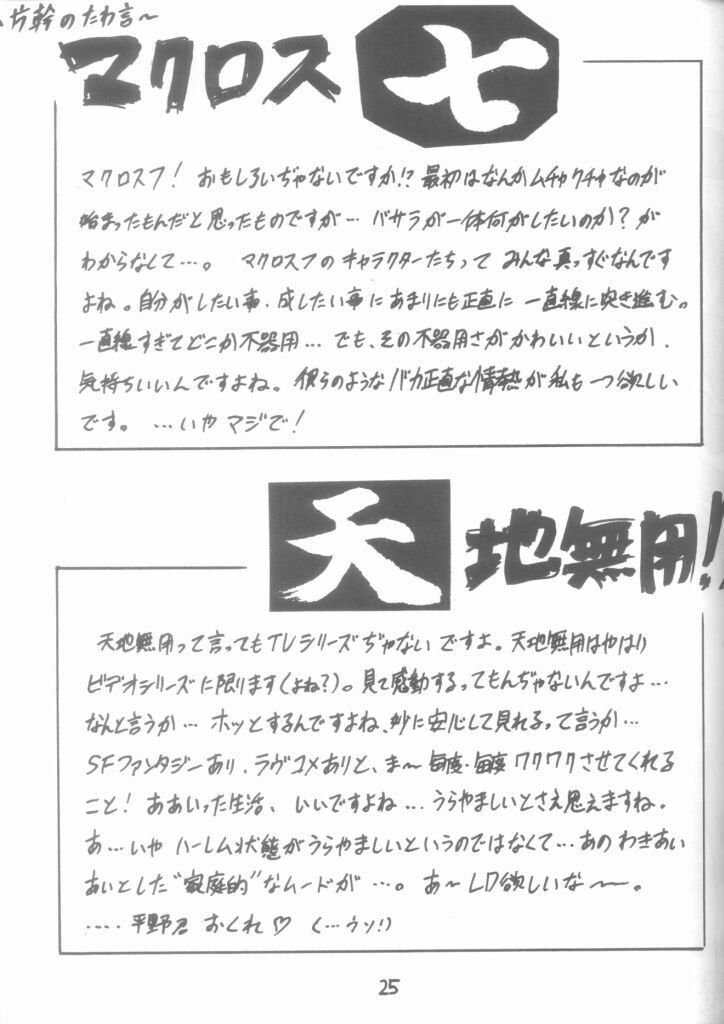 幹のたわ言〜
マクロス 七
マクロス7! おもしろいぢゃないですか!? 最初はなんかムチャクチャなのが
始まったもんだと思ったものですが… バサラが一体何がしたいのか?が
わからなして…。 マクロス7のキャラクターたちって みんな真っすぐなんです
よね。自分がしたい事、成したい事に あまりにも正直に 一直線に突き進む。
一直線すぎてどこか不器用… でも、その不器用さがかわいいというか、
気持ちいいんですよね。彼らのようなバカ正直な情熱が私も一つ欲しい
です。 …いや マジで!
天 地無用!
天地無用って言ってもTVシリーズぢゃないですよ。天地無用はやはり
ビデオシリーズに限ります(よね?)。見て感動するってもんぢゃないんですよ…
なんと言うか… ホッとするんですよね、妙に安心して見れるって言うか…
SFファンタジーあり、ラヴコメありと、ま〜毎度・毎度ワクワクさせてくれる
こと! ああいった生活、いいですよね… うらやましいとさえ思えますね。
あ…いや ハーレム状態がうらやましいというのではなくて…あの わきあい
あいとした“家庭的”なムードが …。 あ〜LD欲しいな〜。
…… 平野君 おくれ♡ (…ウソ!)
25